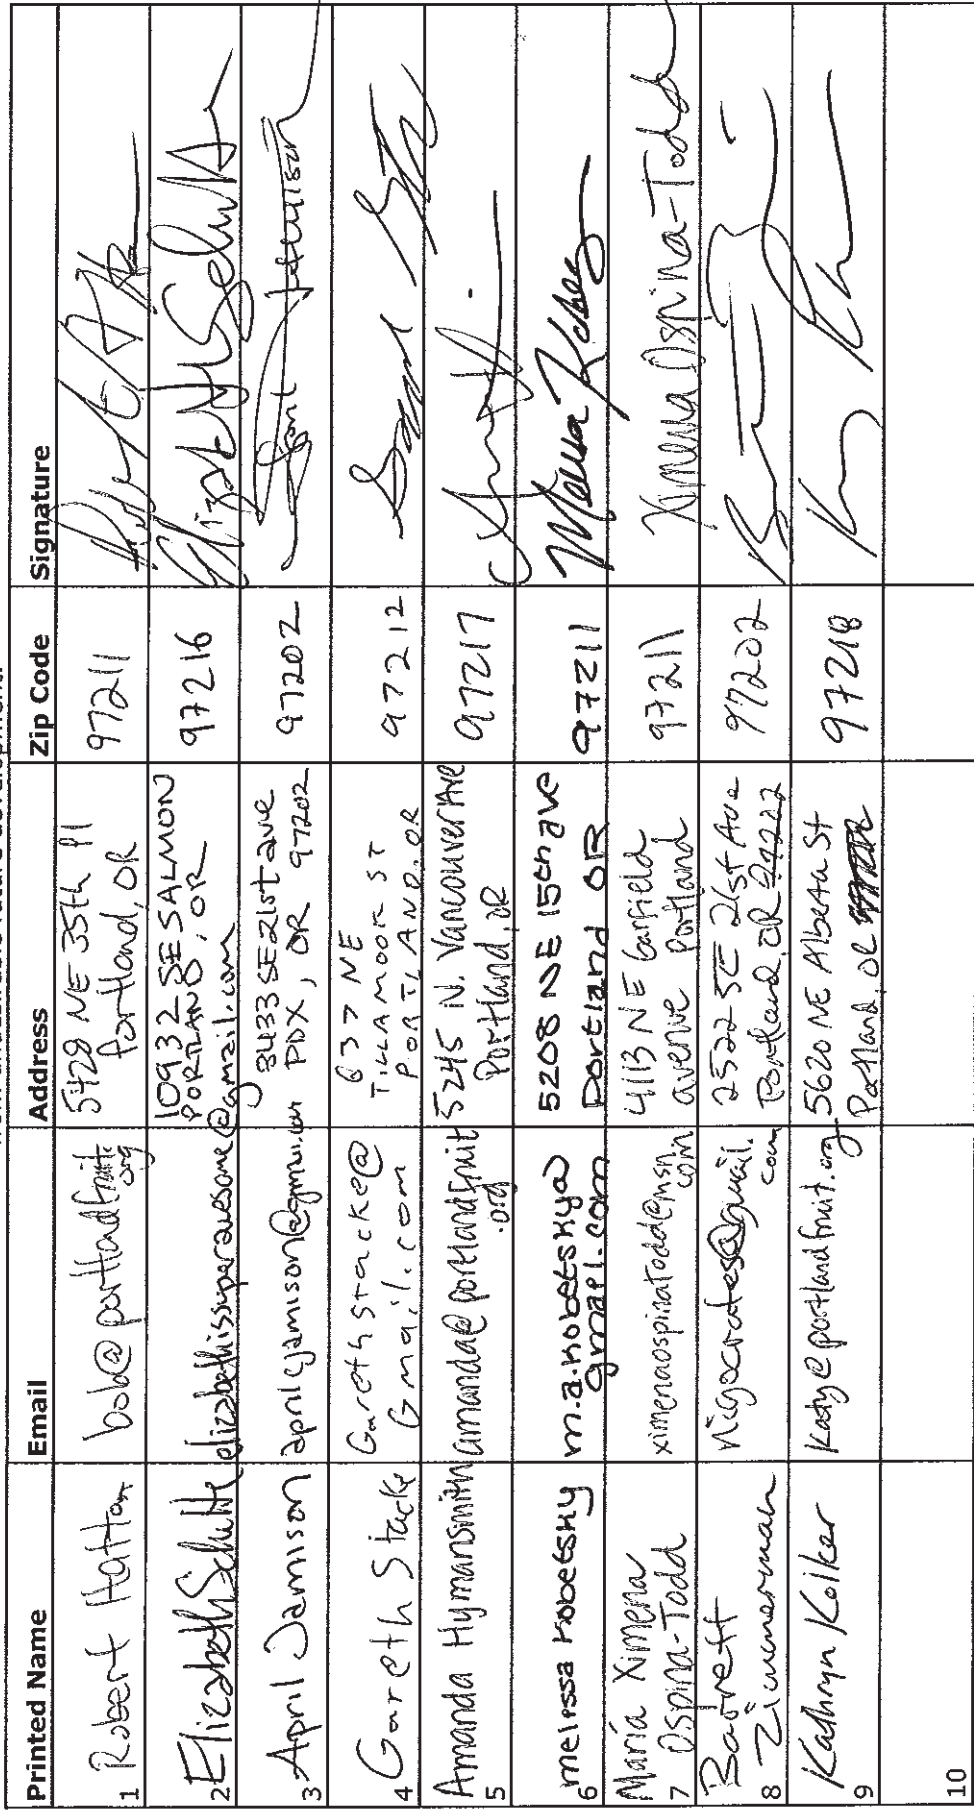 Printed Name Email Address Zip Code Signature
1 Robert Hatton bob@portlandfruit.org 5428 NE 35th Pl Portland, OR 97211
2 Elizabeth Schulte elizabethissuperawesome@gmail.com 10932 SE SALMON PORTLAND, OR 97216
3 April Jamison aprilcjamison@gmail.com 3433 SE 21st ave PDX, OR 97202 97202
4 Gareth Stacke Garethstacke@Gmail.com 637 NE TILLAMOOK ST PORTLAND, OR 97212
5 Amanda Hymansmith amanda@portlandfruit.org 5245 N. Vancouver Ave Portland, OR 97217
6 melissa Kobetsky m.a.kobetsky@gmail.com 5208 NE 15th ave Portland OR 97211
7 María Ximena Ospina-Todd ximenaospinatodd@msn.com 4113 NE Garfield avenue Portland 97211 Ximena Ospina-Todd
8 Barrett Zimmerman nigocrates@gmail.com 2522 SE 21st Ave Portland, OR 97202
9 Kathryn Kolker Katy@portlandfruit.org 5620 NE Alberta St Portland, OR 97218
10